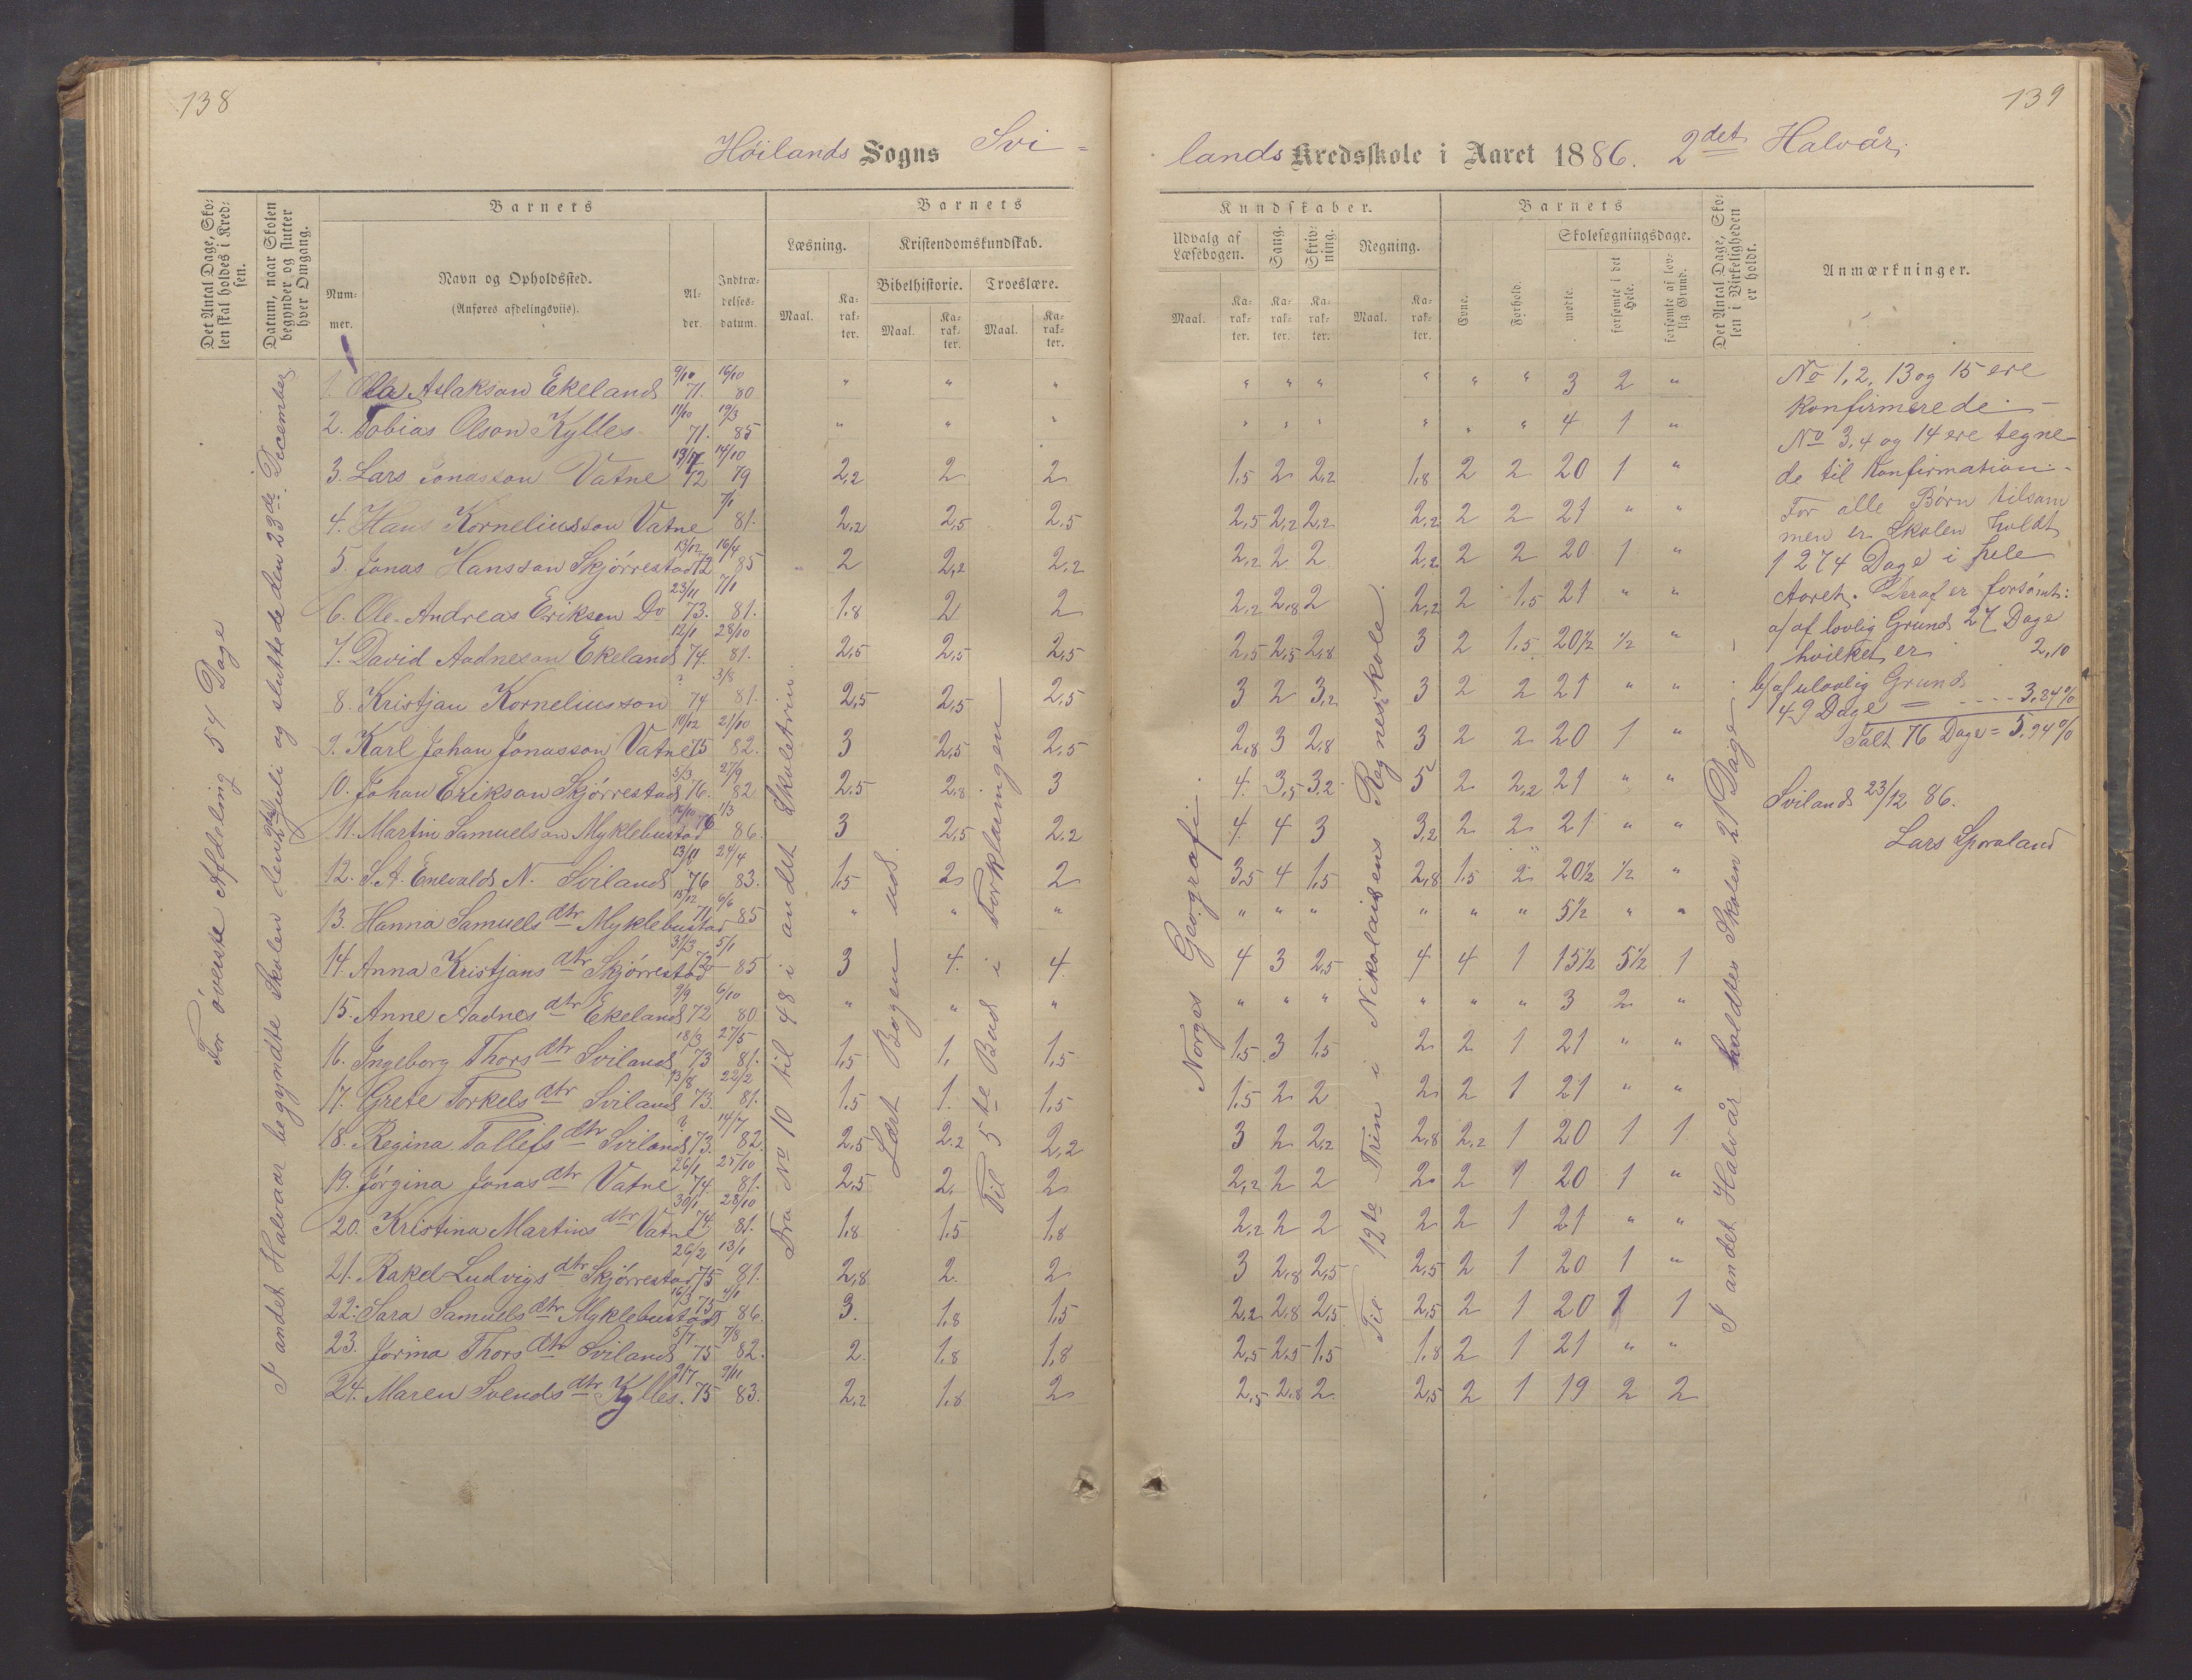 138
Höilands Sogns Svi-
Det Antal Dage, Skolen skal holdes i Kredsen.
Datum, naar Skolen begynder og slutter hver Omgang.
Barnets
Nummer.
Navn og Opholdssted.
(Anføres afdelingsviis).
Alder.
Indtrædelsesdatum.
Barnets
Læsning.
Maal.
Karakter.
Kristendomskundskab.
Bibelhistorie.
Maal.
Karakter.
Troeslære.
Maal.
Karakter.
For överste Afdeling 54 Dage
I andet Halvaar begyndte Skolen den 2den Juli og sluttede den 23de December
Fra No 10 til 48 i andet Skoletrin.
Lært Bogen ud.
Til 5te Bud i Forklaringen
1. Ola Aslakson Ekeland 9/10 71. 16/10 80 " " "
2. Tobias Olson Kylles 11/10 71. 19/3 85 " " "
3. Lars Jonasson Vatne 72 14/10 79 2,2 2 2
4. Hans Korneliusson Vatne 7/1 81. 2,2 2,5 2,5
5. Jonas Hansson Skjørrestad 13/12 72 16/4 85 2 2,2 2,2
6. Ole Andreas Eriksen Do 23/11 73. 7/1 81. 1,8 2 2
7. David Aadneson Ekeland 12/1 74. 28/10 81. 2,5 2,5 2,5
8. Kristjan Korneliusson ? 74 3/8 81. 2,5 2,5 2,5
9. Karl Johan Jonasson Vatne 10/12 75 21/10 82. 3 2,5 2,5
10. Johan Erikson Skjørrestad 5/3 76. 27/9 82 2,5 2,8 3
11. Martin Samuelson Myklebustad 76 1/3 86. 3 2,5 2,2
12. S. A. Enevalds N. Sviland 13/11 76 24/4 83. 1,5 2 2
13. Hanna Samuels dtr Myklebustad 15/12 71 6/6 85 " " "
14. Anna Kristjans dtr Skjørrestad 31/3 72 5/1 85 3 4. 4
15. Anne Aadnes dtr Ekeland 9/9 72 6/10 80 " " "
16. Ingeborg Thors dtr Sviland 18/3 73 27/5 81. 1,5 1, 1,5
17. Grete Torkels dtr Sviland 13/8 73. 22/2 81. 1,5 1. 1,5
18. Regina Tollefs dtr Sviland ? 73. 14/7 82. 2,5 2,2 2,2
19. Jørgina Jonas dtr Vatne 26/1 74. 25/10 81. 2,5 2. 2
20. Kristina Martins dtr Vatne 30/1 74. 28/10 81. 1,8 1,5 1,8
21. Rakel Ludvigs dtr Skjørrestad 26/2 75 13/1 81. 2,8 2. 2
22. Sara Samuels dtr Myklebustad 16/3 75 4/1 86. 3. 1,8 1,5
23. Jorina Thors dtr Sviland 5/7 75 7/8 82. 2. 1,8 1,8
24. Maren Svends dtr Kylles. 9/7 75 9/11 83. 2,2 1,8 2
139
lands Kredsskole i Aaret 1886. 2det Halvår.
Kundskaber.
Udvalg af Læsebogen.
Maal.
Karakter.
Sang.
Karakter.
Skrivning.
Karakter.
Regning.
Maal.
Karakter.
Barnets
Evne.
Forhold.
Skolesøgningsdage.
mødte.
forsømte i det Hele.
forsømte af lovlig Grund.
Det Antal Dage, Skolen i Virkeligheden er holdt.
Anmærkninger.
Norges Geografi.
Til 12te Trin i Nikolaisens Regneskole.
I andet Halvår holdtes Skolen 21 Dage.
" " " " " " 3 2 "
" " " " " " 4 1 "
1,5 2 2,2 1,8 2 2 20 1 "
2,5 2,2 2,2 2,2 2 2 21 " "
2,2 2 2 2,2 2 2 20 1 "
2,2 2,8 2 2,2 2 1,5 21 " "
2,5 2,5 2,8 3 2 1,5 20½ ½ "
3 2 3,2 3 2 2 21 " "
2,8 3 2,8 3 2 2 20 1 "
4. 3,5 3,2 5 2 2,2 21 " "
4. 4 3 3,2 2 2 21 " "
3,5 4 1,5 2,8 1,5 2 20½ ½ "
" " " " " " 5½ " "
4 3 2,5 4 4 1 15½ 5½ 1
" " " " " " 3 2 "
1,5 3 1,5 2 2 1 21 " "
1,5 2 2 2 2 1 21 " "
3 2 2,2 2,8 2,2 1 20 1 1
2,2 2 2 2 2 1 20 1 "
2,2 2 2 2 2 1 21 " "
3 2,8 2,5 2,5 2 1 20 1 "
2,2 2,8 2,5 2,5 2 1 20 1 1
2,5 2,5 1,5 1,8 2 1 21 " "
2,5 2,8 2 2,5 2 1 19 2 2
No 1, 2, 13 og 15 ere
Konfirmerede.
No 3, 4 og 14 ere tegne-
de til Konfirmation.
For alle Børn tilsam
men er Skolen holdt
1274 Dage i hele
Aaret. Deraf er forsömt:
a/ af lovlig Grund 27 Dage
hvilket er 2,10
b/ af ulovlig Grund
49 Dage = .... 3,84%
Talt 76 Dage = 5,94%
Sviland 23/12 86.
Lars Sporaland